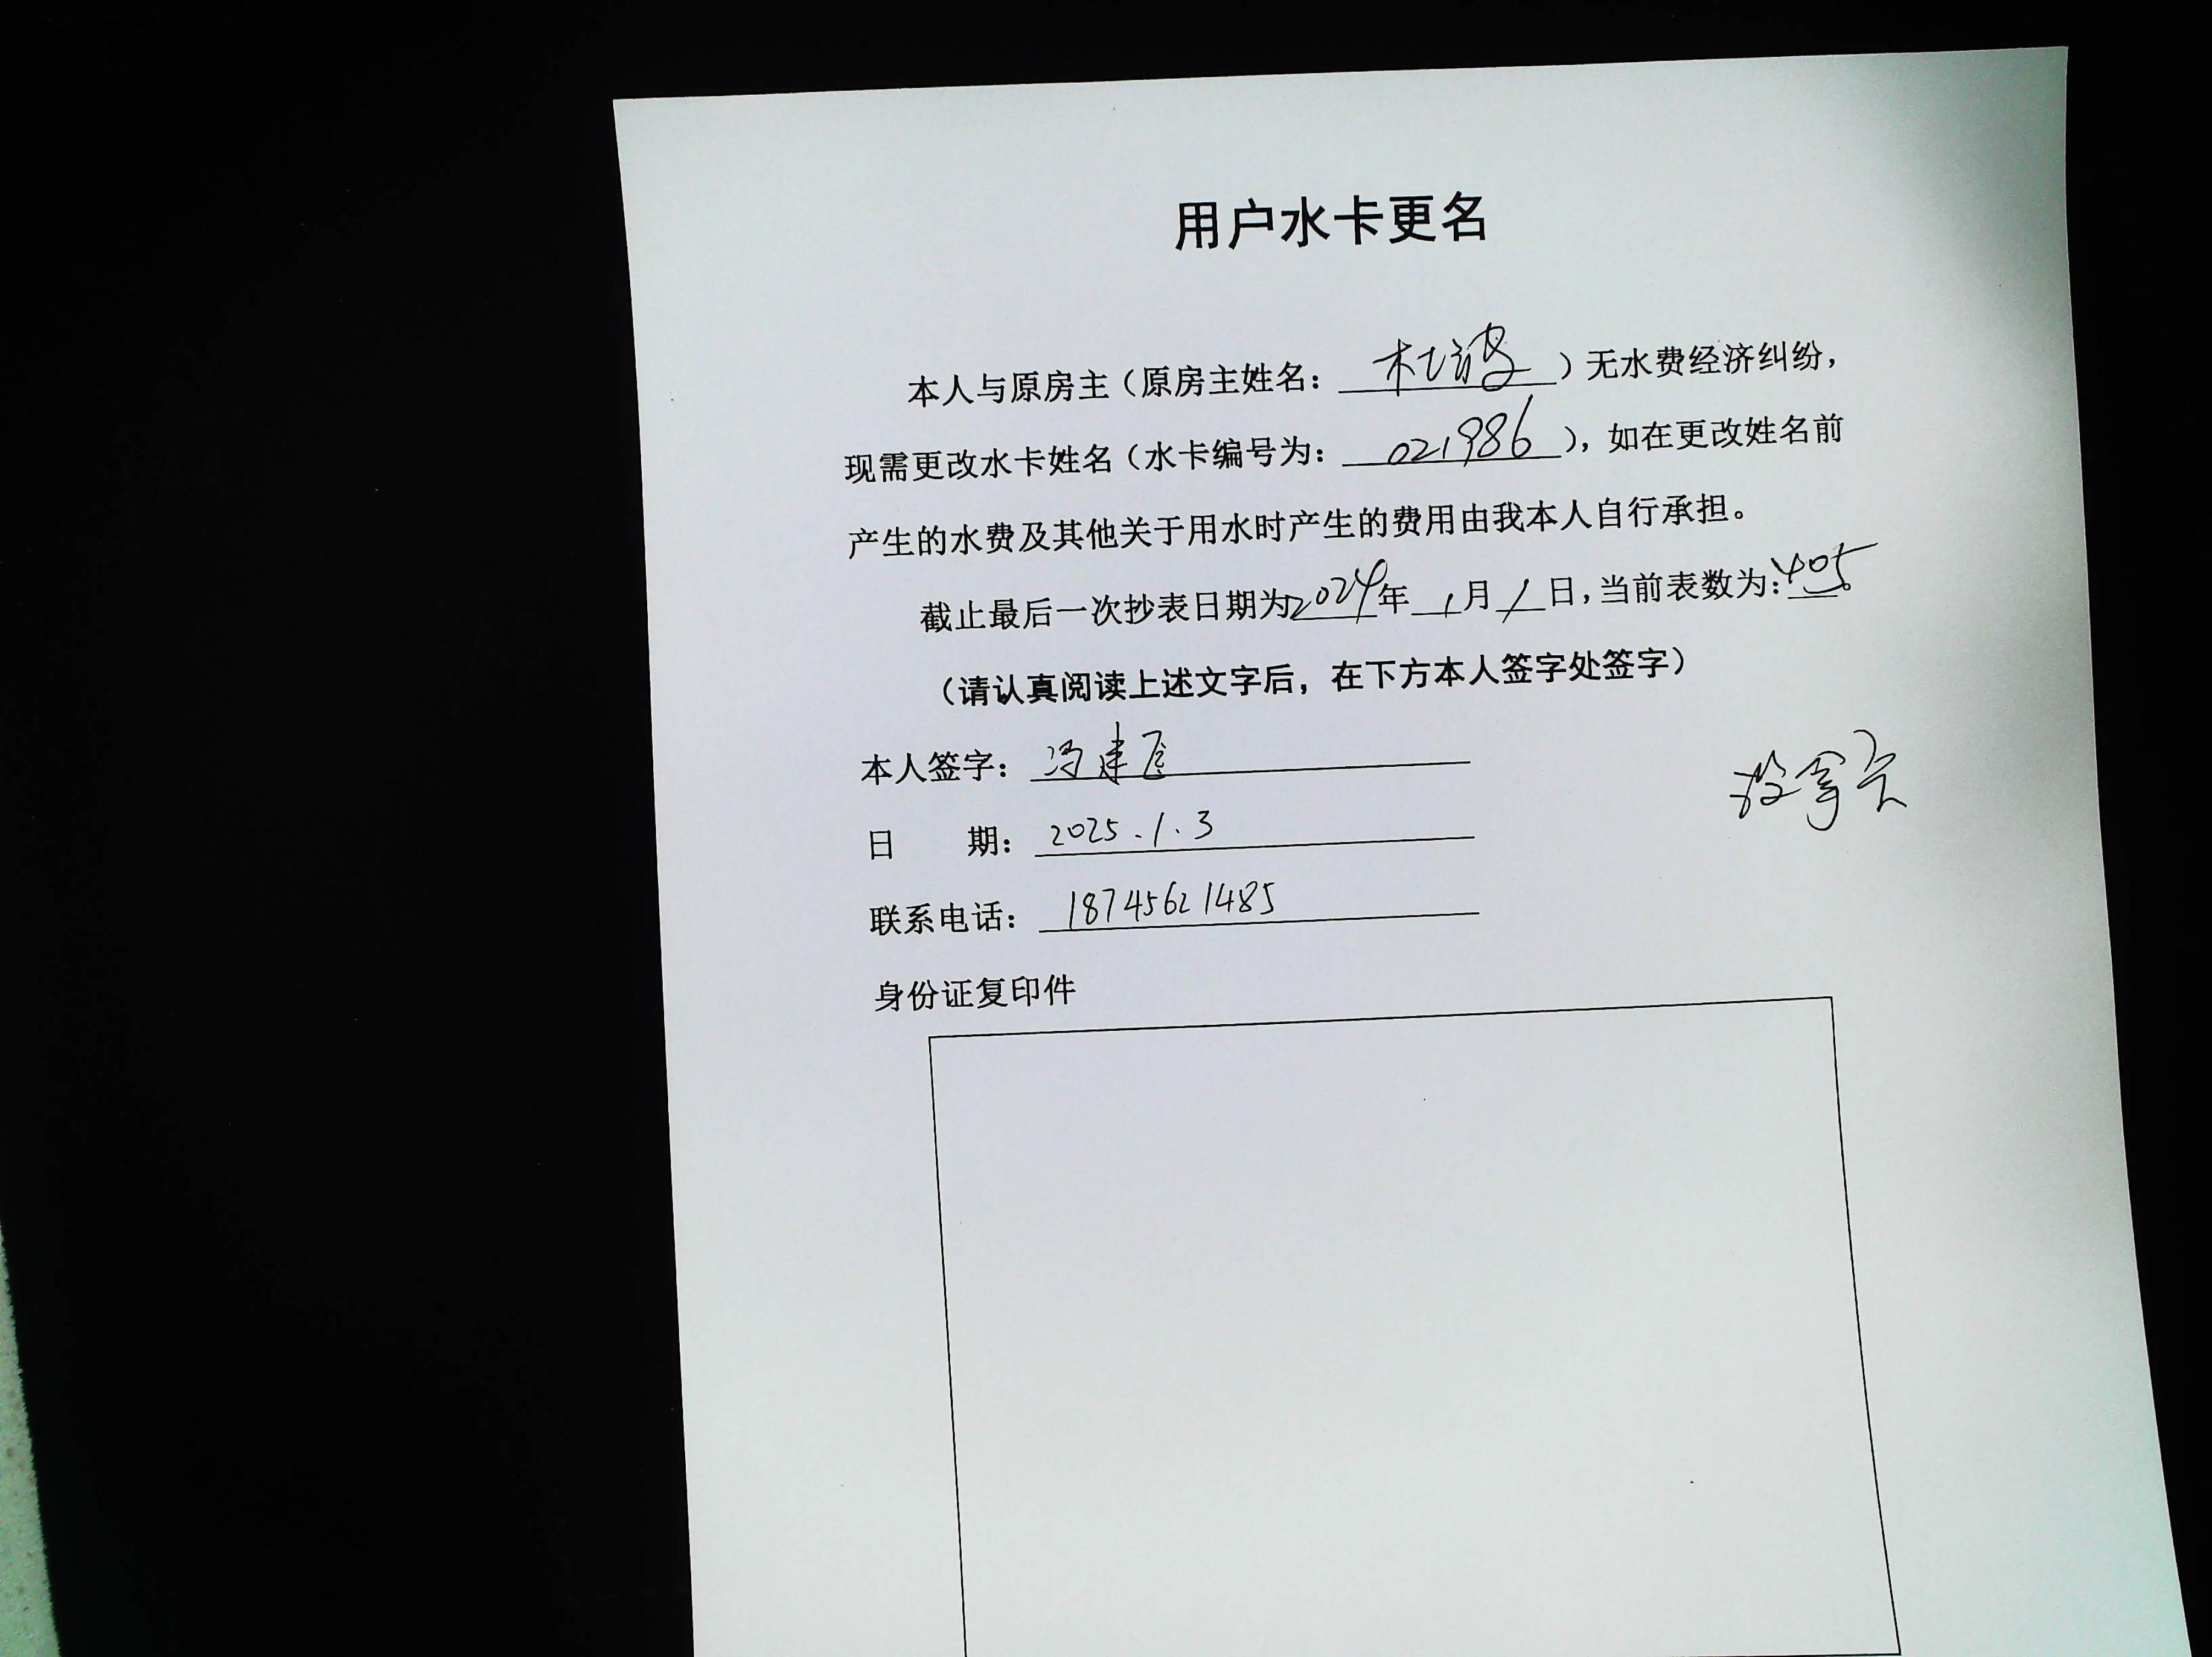 用户水卡更名
本人与原房主（原房主姓名：）无水费经济纠纷，
现需更改水卡姓名（水卡编号为：021986），如在更改姓名前
产生的水费及其他关于用水时产生的费用由我本人自行承担。
截止最后一次抄表日期为2024年1月1日，当前表数为：405。
（请认真阅读上述文字后，在下方本人签字处签字）
本人签字：冯建
没拿卡
日 期：2025.1.3
联系电话：18745621485
身份证复印件